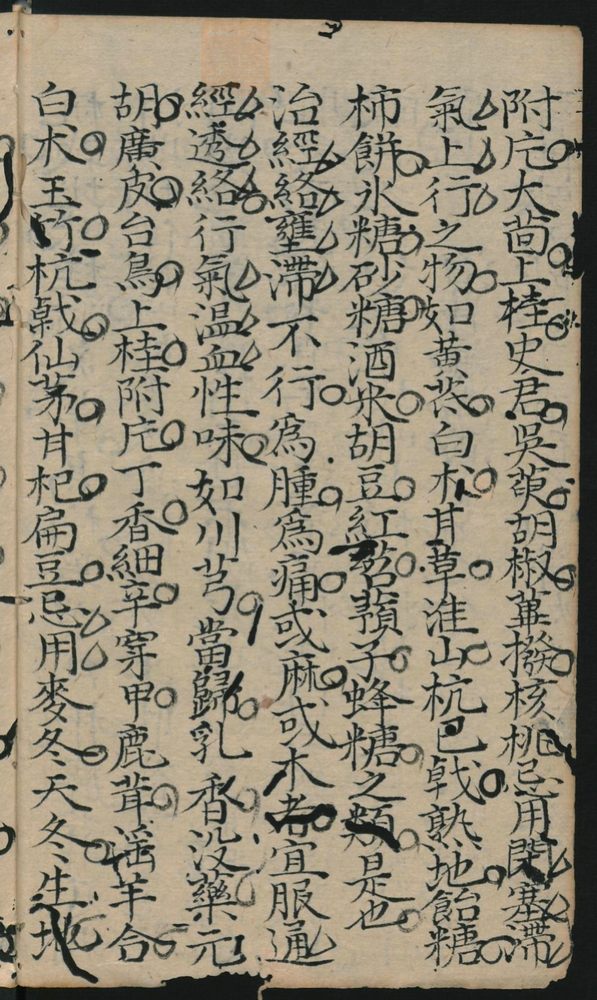 附庀大茴上桂史君吳萸胡椒蓽撥核桃忌用閉塞滯
氣上行之物如黃芪白术甘草淮山杭巴戟熟地飴糖
柿餅氷糖砂糖酒米胡豆紅苕蘋子蜂糖之類是也
治經絡壅滯不行爲腫爲痛或麻或木者宜服通
經透絡行氣温血性味如川芎當歸乳香没藥元
胡廣皮台烏上桂附庀丁香細辛穿甲鹿茸滛羊合
白术玉竹杭戟仙茅甘杞扁豆忌用麥冬天冬生地